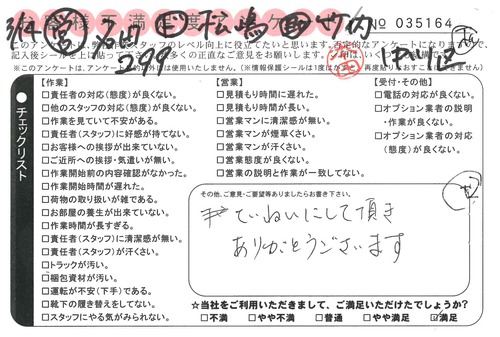 № 035164
このアンケートは、弊社スタッフのレベル向上に役立てたいと思います。否定的なアンケートになりますので、
【作業】
□責任者の対応(態度)が良くない。
□他のスタッフの対応(態度)が良くない。
□作業を見ていて不安がある。
□責任者(スタッフ)に好感が持てない。
□お客様への挨拶が出来ていない。
□ご近所への挨拶・気遣いが無い。
□作業開始前の内容確認がなかった。
□作業開始時間が遅れた。
□荷物の取り扱いが雑である。
□お部屋の養生が出来ていない。
□作業時間が長すぎる。
□責任者(スタッフ)に清潔感が無い。
□責任者(スタッフ)が汗くさい。
□トラックが汚い。
□梱包資材が汚い。
□運転が不安(下手)である。
□靴下の履き替えをしてない。
□スタッフにやる気がみられない。
チェックリスト
【営業】
□見積もり時間に遅れた。
□見積もり時間が長い。
□営業マンに清潔感が無い。
□営業マンが煙草くさい。
□営業マンが汗くさい。
□営業態度が良くない。
□営業の説明と作業が一致してない。
【受付・その他】
□電話の対応が良くない。
□オプション業者の説明
・作業が良くない。
□オプション業者の対応
(態度)が良くない。
その他、ご意見・ご要望等ありましたらお書き下さい。
ていねいにして頂き
ありがとうございます
☆当社をご利用いただきまして、ご満足いただけたでしょうか?
□不満 □やや不満 □普通 □やや満足 ☑満足